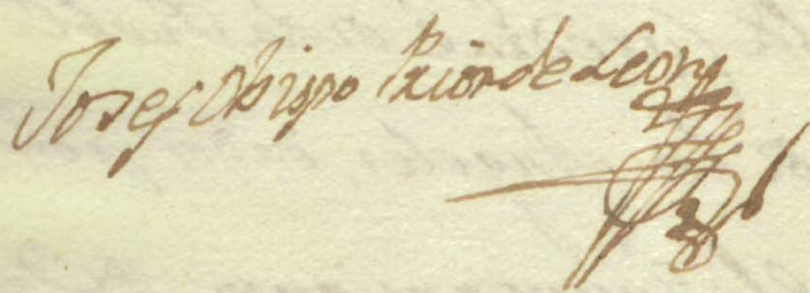 Josef Obispo Prior de Leon